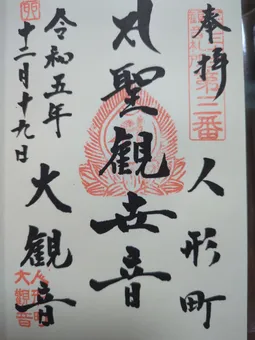 奉拝
第三番
人形町
聖観世音
大観音
令和五年
十二月十九日
大観音